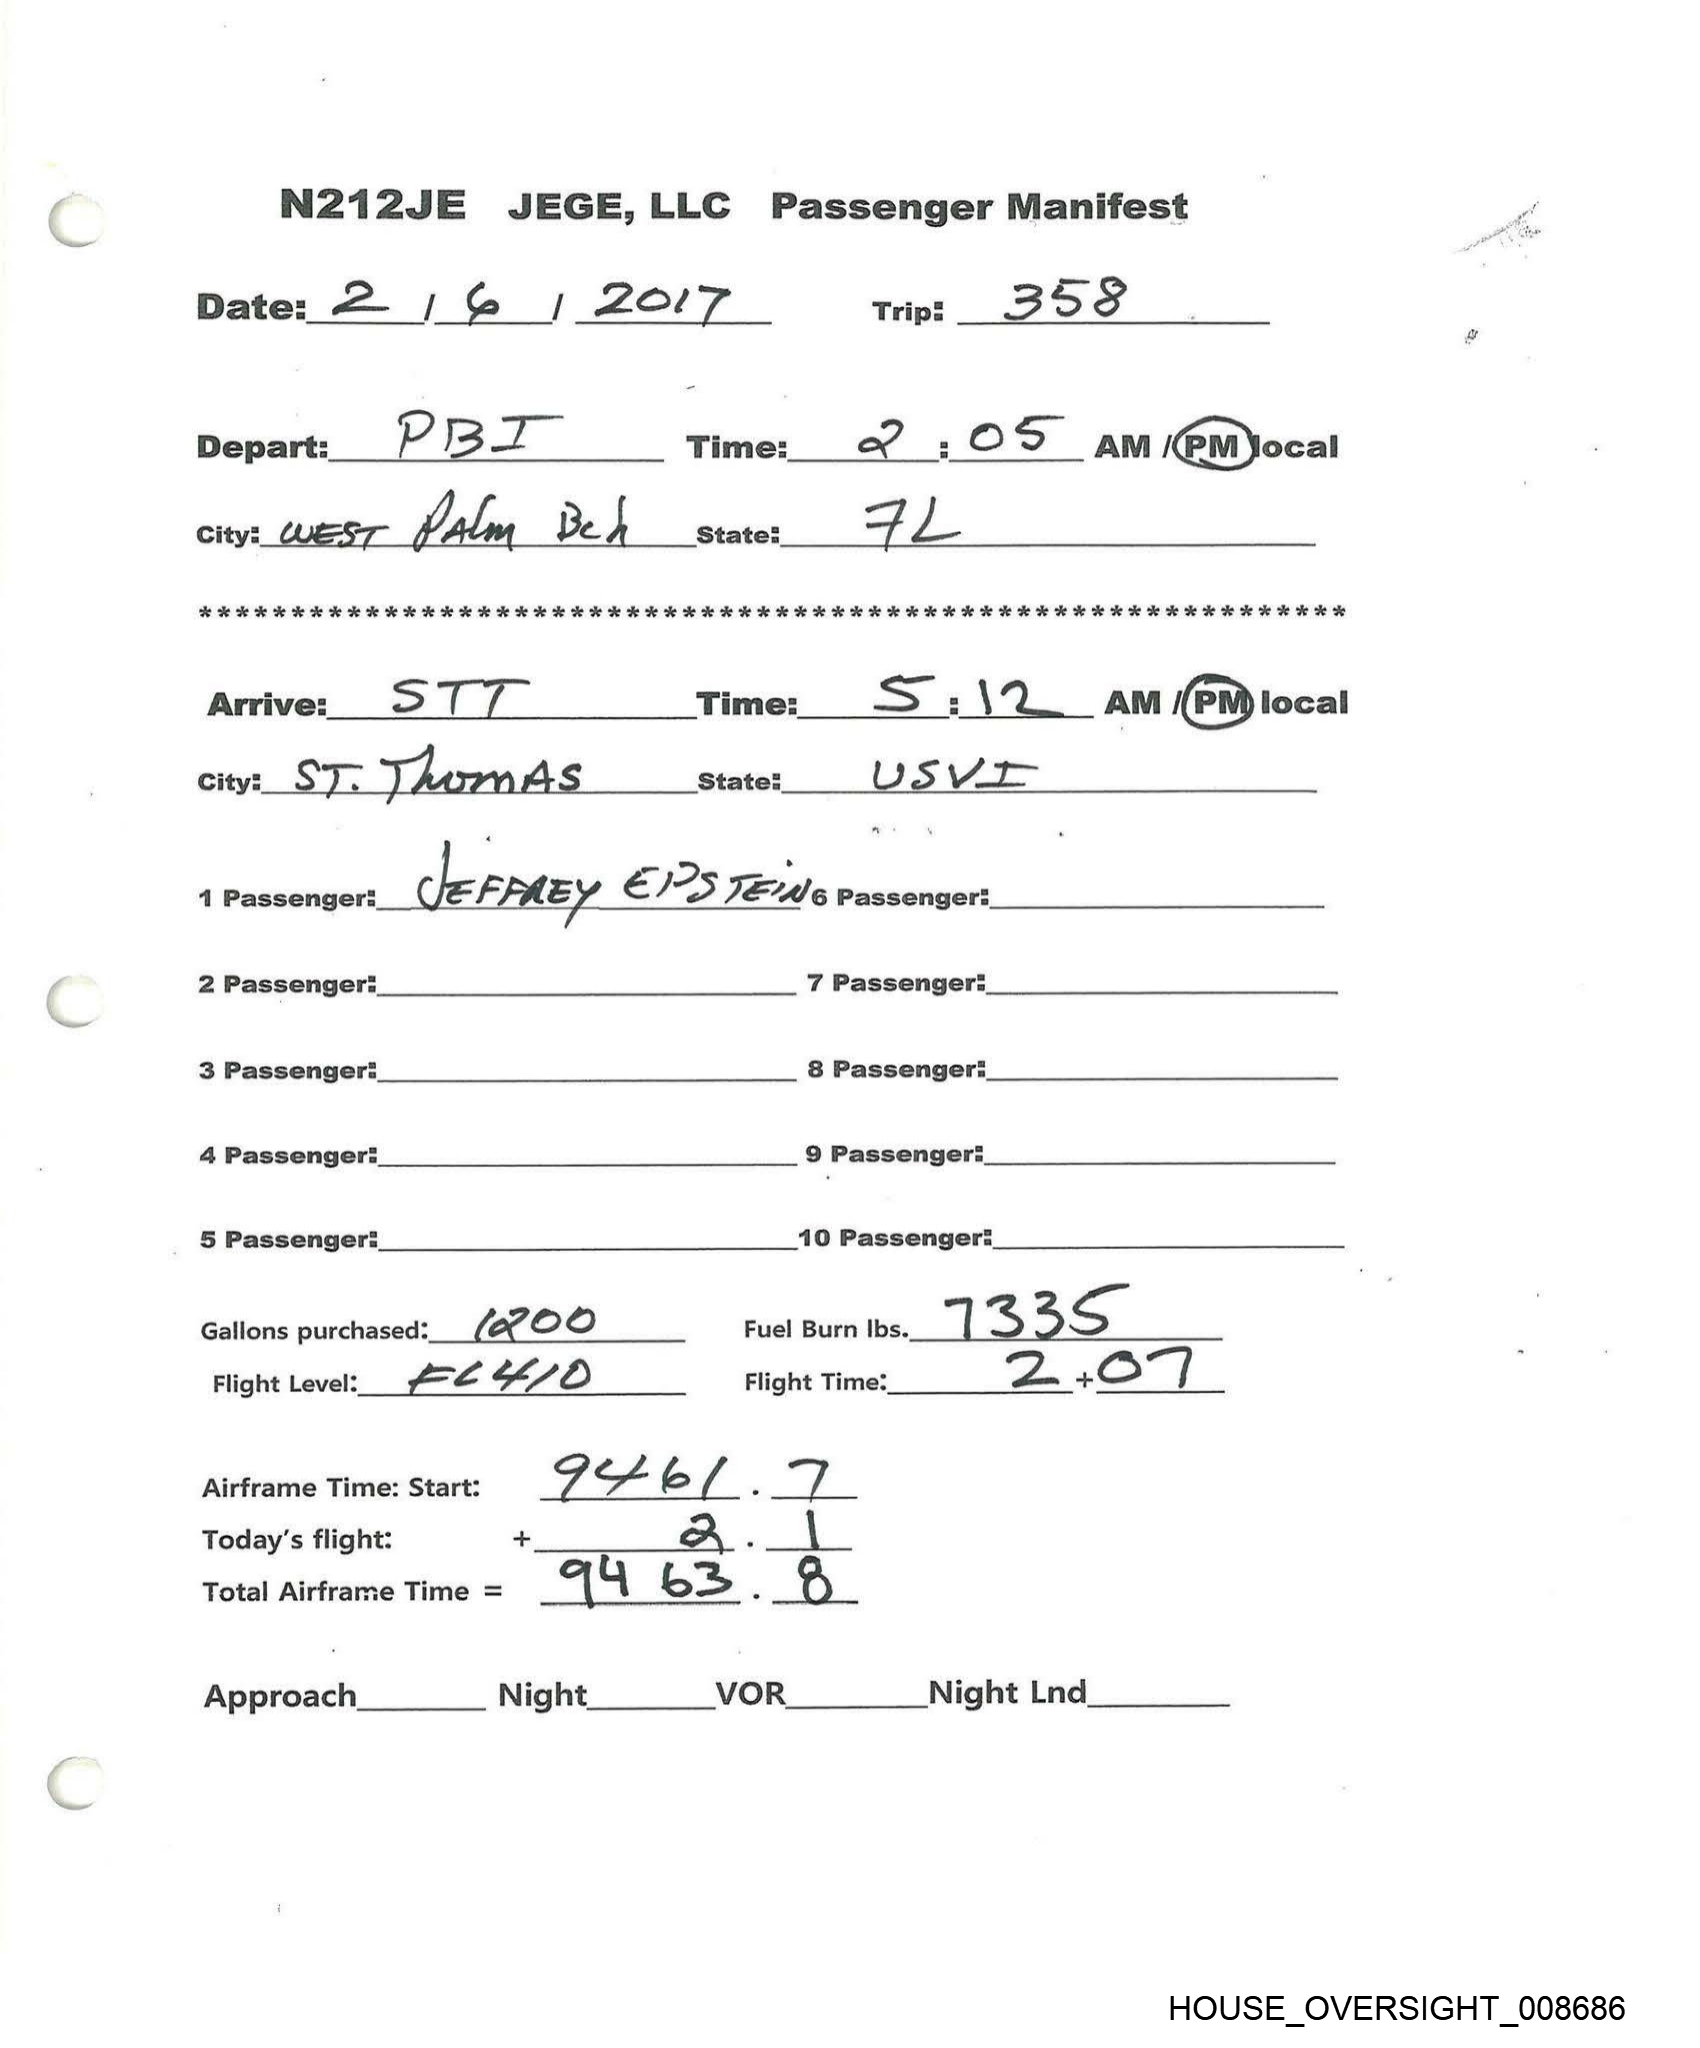 N212JE JEGE, LLC Passenger Manifest
Date: 2 / 6 / 2017 Trip: 358
Depart: PBI Time: 2 : 05 AM / PM local
City: WEST PALM Bch State: FL
**************************************************************
Arrive: STT Time: 5 : 12 AM / PM local
City: ST. THOMAS State: USVI
1 Passenger: JEFFREY EPSTEIN 6 Passenger:
2 Passenger: 7 Passenger:
3 Passenger: 8 Passenger:
4 Passenger: 9 Passenger:
5 Passenger: 10 Passenger:
Gallons purchased: 1200 Fuel Burn lbs. 7335
Flight Level: FL410 Flight Time: 2 + 07
Airframe Time: Start: 9461 . 7
Today's flight: + 2 . 1
Total Airframe Time = 9463 . 8
Approach Night VOR Night Lnd
HOUSE_OVERSIGHT_008686